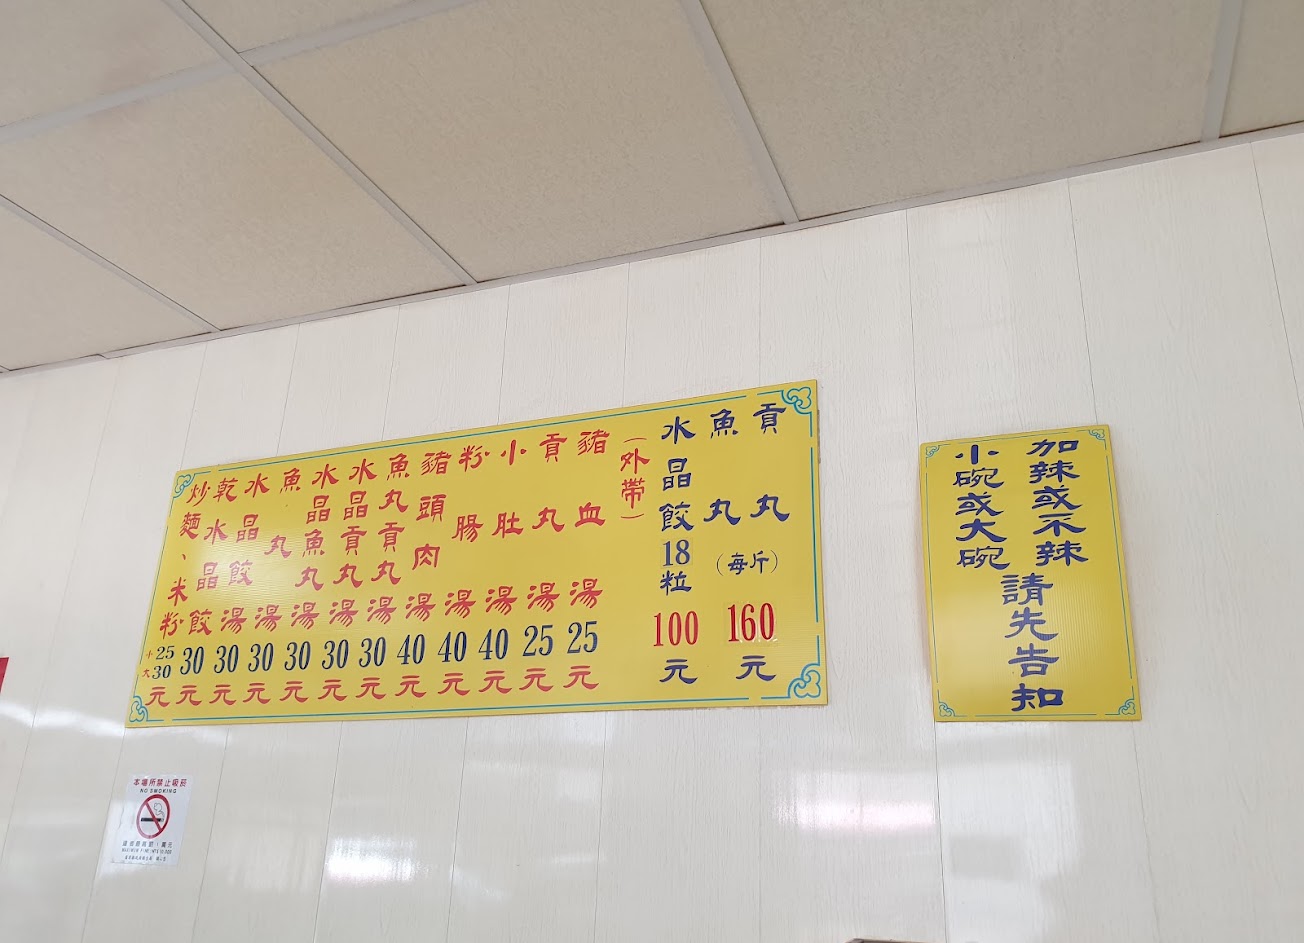 炒麵、米粉 小25 大30 元
乾水晶餃 30元
水晶餃湯 30元
魚丸湯 30元
水晶魚丸湯 30元
水晶貢丸湯 30元
魚丸貢丸湯 30元
豬頭肉湯 40元
粉腸湯 40元
小肚湯 40元
貢丸湯 25元
豬血湯 25元
(外帶)
水晶餃18粒 100元
魚丸
貢丸
(每斤)
160元
加辣或不辣
小碗或大碗
請先告知
本場所禁止吸菸
NO SMOKING